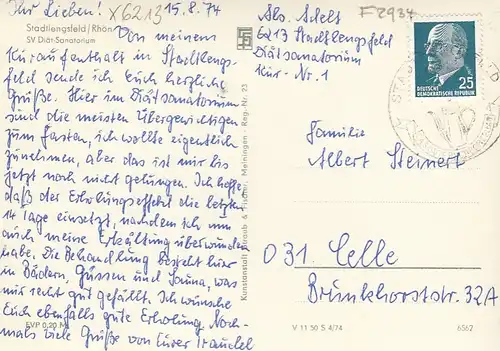 Ihr Lieben! X6213 15.8.74
Stadtlengsfeld/Rhön
SV Diät-Sanatorium
Von meinem
Kuraufenthalt in Stadtlengs-
feld sende ich Euch herzliche
Grüße. Hier im Diätsanatorium
sind die meisten Übergewichtigen
zum Fasten, ich wollte eigentlich
zunehmen, aber das ist mir bis
jetzt noch nicht gelungen. Ich hoffe
daß der Erholungseffekt die letzten
14 Tage einsetzt, nachdem ich nun
auch meine Erkältung überwunden
habe. Die Behandlung besteht hier
in Bädern, Güssen und Sauna, was
mir recht gut gefällt. Ich wünsche
Euch ebenfalls gute Erholung. Noch-
mals viele Grüße von Eurer Traudel
EVP 0,20 M
Kunstanstalt Straub & Fischer, Meiningen Reg.-Nr. 23
Abs. Adelt
6213 Stadtlengsfeld
Diätsanatorium
Kur-Nr. 1
F2934
25
DEUTSCHE
DEMOKRATISCHE REPUBLIK
Familie
Albert Steinert
031. Celle
Brinkhorststr. 32A
V 11 50 S 4/74
6562